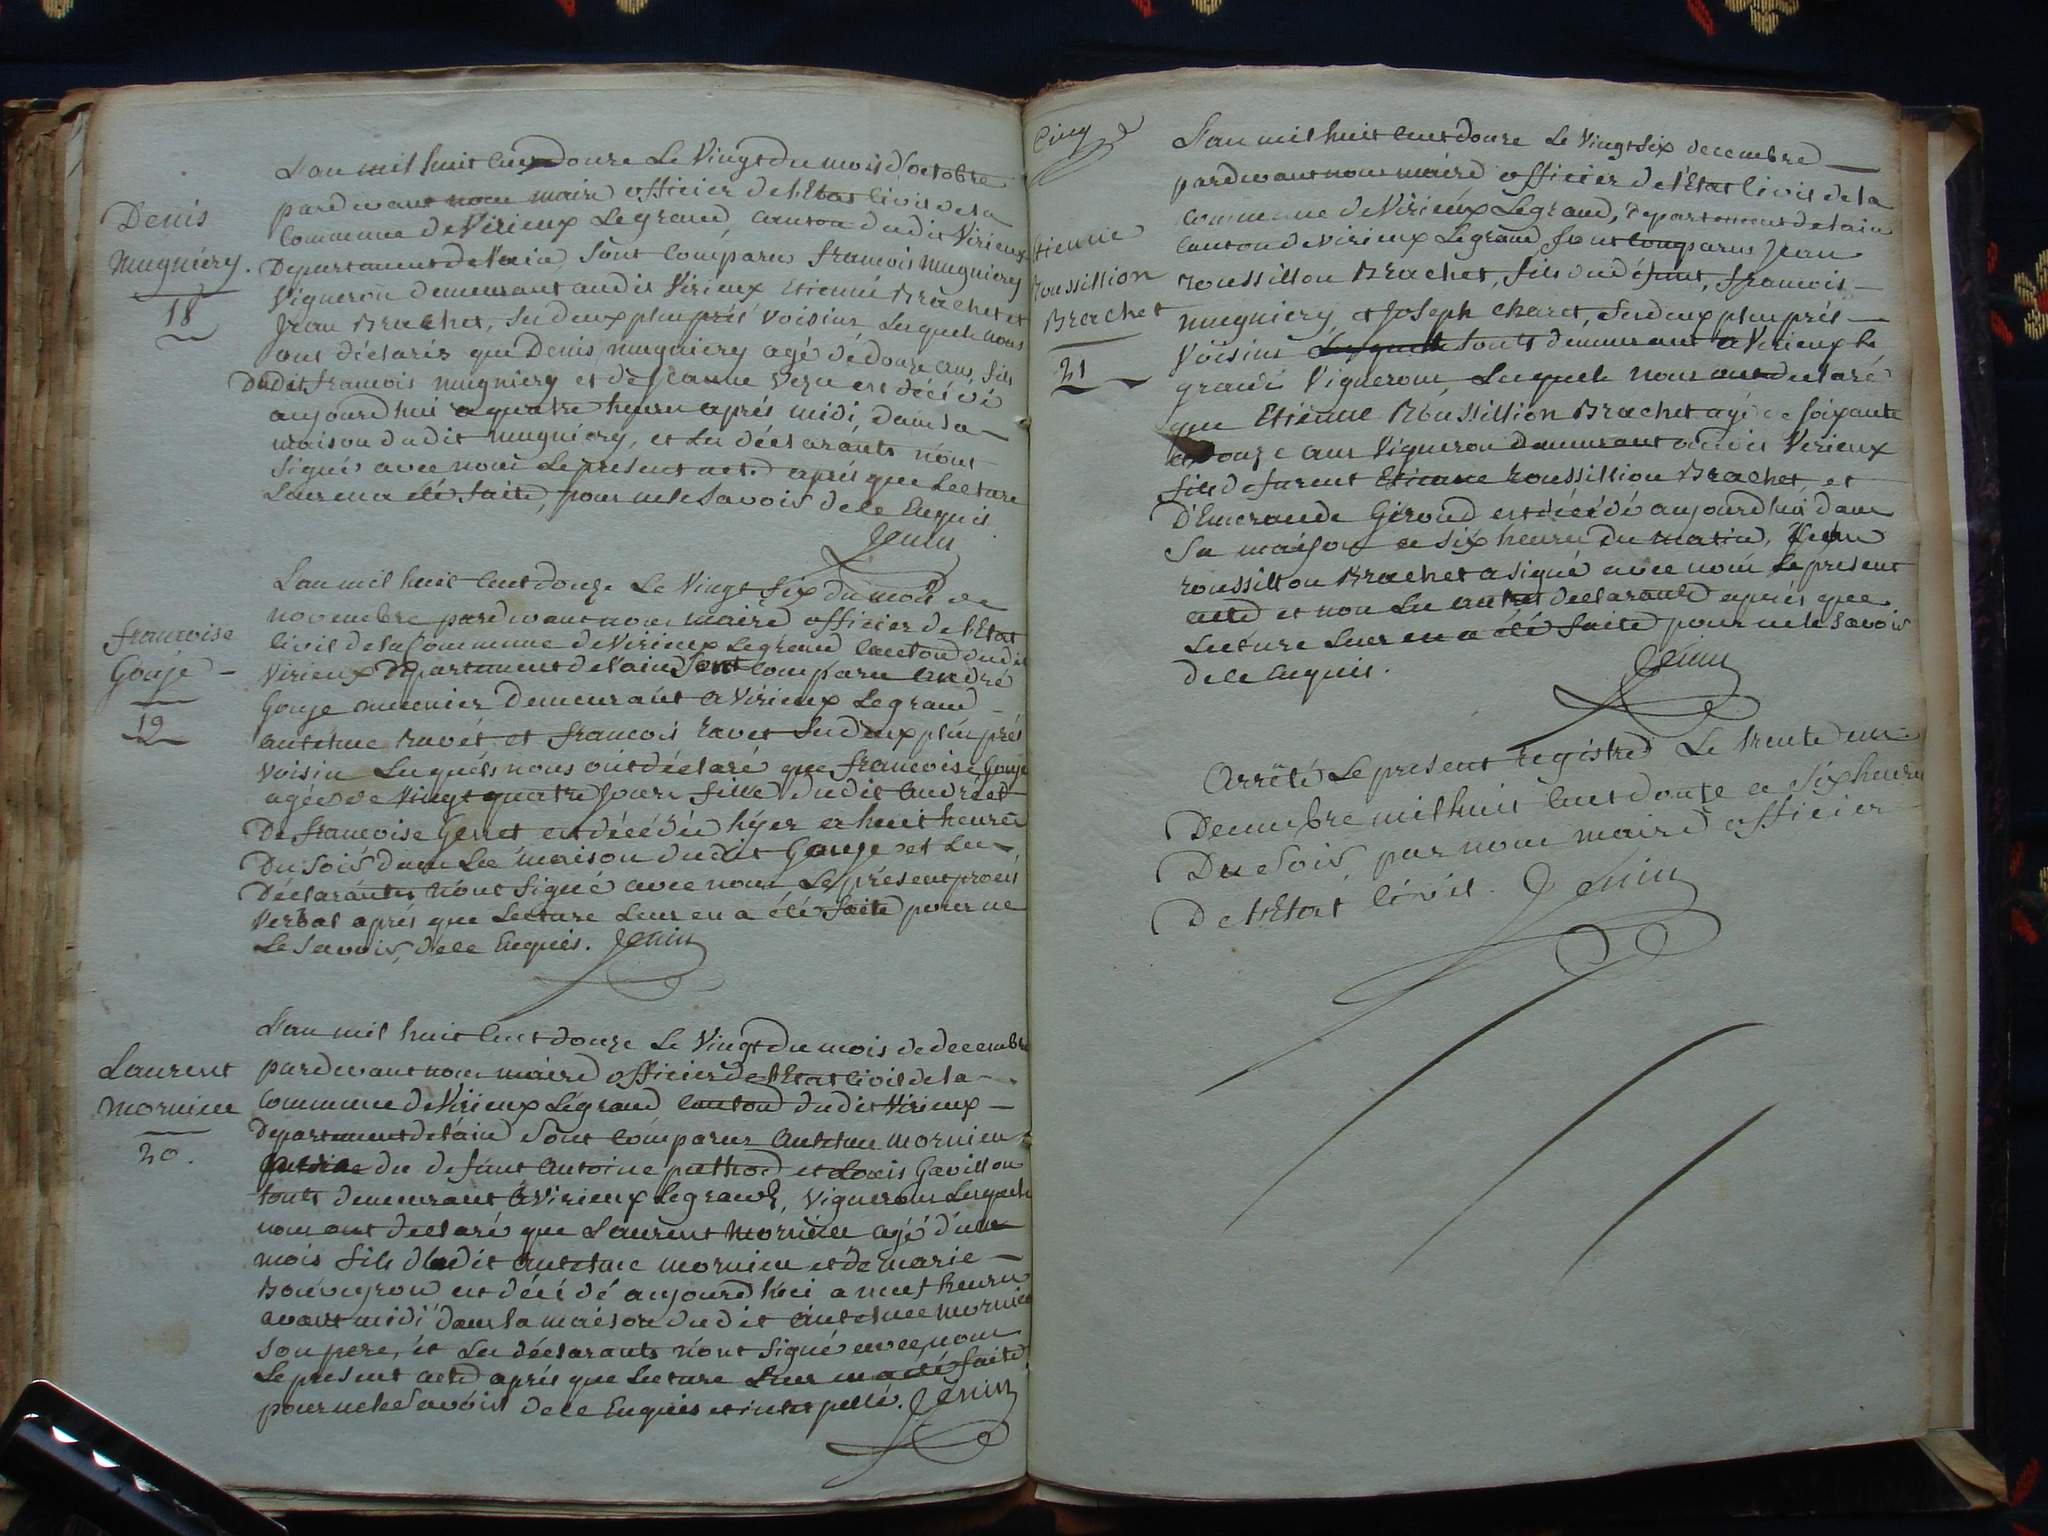 Denis
Mugniery.
18
L'an mil huit cent douze Le Vingt du mois d'octobre
pardevant nous maire officier de l'Etat Civil de la
Commune de Virieux Legrand, canton dudit Virieux
Departement de l'ain, sont comparu francois mugniery
Vigneron demeurant audit Virieux Etienne Brachet et
Jean Brachet, ses deux plus près Voisins Lesquels nous
ont déclarés que Denis mugniery agé de douze ans, fils
Dudit francois mugniery et de Jeanne est décédé
aujourd'hui a quatre heures après midi, dans la
maison dudit mugniery, et Les déclarants n'ont
signés avec nous Le present acte après que Lecture
Leur en a été faite, pour ne le savoir de ce Enquis.
Jenin
francoise
Gouje
19
L'an mil huit Cent douze Le Vingt six du mois de
novembre pardevant nous maire officier de l'Etat
Civil de la Commune de Virieux Legrand Canton dudit
Virieux Departement de l'ain sont comparu André
Gouje meunier demeurant a Virieux Legrand
antelme Ravet et francois ravet ses deux plus près
Voisin Lesquels nous ont déclaré que francoise Gouje
agée de Vingt quatre jours fille dudit André et
De francoise Genet est décédée hyer a huit heures
Du soir dans La maison dudit Gouge et Les
Déclarantes n'ont signé avec nous Le présent procès
Verbal après que Lecture Leur en a été faite pour ne
Le savoir, de ce Enquis. Jenin
Laurent
Mornieu
20.
L'an mil huit Cent douze Le Vingt du mois de decembre
pardevant nous maire officier de l'Etat Civil de la
Commune de Virieux Légrand Canton dudit Virieux
Departement de l'ain sont comparus Antelme mornieu
du defunt Antoine pathod et Louis Gavillon
touts demeurant à Virieux Legrand, Vignerons Lesquels
nous ont declaré que Laurent Mornieu agé d'un
mois fils dudit Antelme mornieu et de Marie
Bouveyron est décédé aujourd'hui a neuf heures
avant midi dans la maison dudit Antelme mornieu
son pere, et Les déclarants n'ont signé avec nous
Le present acte après que Lecture Leur en a été faite
pour ne le savoir de ce Enquis et interpellé. Jenin
Cinq
Etienne
Roussillion
Brachet
21
L'an mil huit Cent douze Le Vingt six decembre
pardevant nous maire officier de l'Etat Civil de la
Commune de Virieux Legrand, departement de l'ain
Canton de Virieux Legrand sont comparus Jean
roussillon Brachet, fils du défunt, francois
mugniery et Joseph Charet, ses deux plus près
Voisins touts demeurant a Virieux le
grand Vignerons, Lesquels nous ont declaré
que Etienne Roussillion Brachet agé de soixante
douze ans Vigneron demeurant audit Virieux
fils de furent Etienne roussillion Brachet, et
D'Emerande Giroud est décédé aujourd'hui dans
sa maison a six heures du matin, Jean
roussillon Brachet a signé avec nous Le present
acte et non Les autres declarants après que
Lecture Leur en a été faite pour ne le savoir
de ce Enquis.
Jenin
Arrêté Le present registre Le trente un
Decembre mil huit Cent douze a six heures
Du soir, par nous maire officier
De l'Etat Civil. Jenin